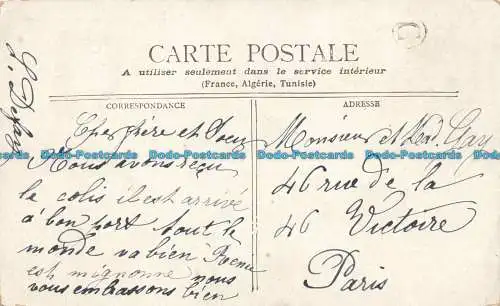 CARTE POSTALE
A utiliser seulement dans le service intérieur
(France, Algérie, Tunisie)
CORRESPONDANCE
ADRESSE
Cher frère et Soeur
Nous avons reçu
le colis il est arrivé
à bon port tout le
monde va bien
est mignonne nous
vous embrassons bien
Monsieur et Mad.
46 rue de la
46 Victoire
Paris
C
Dodo-Postcards Dodo-Postcards Dodo-Postcards Dodo-Postcards Dodo-Postcards